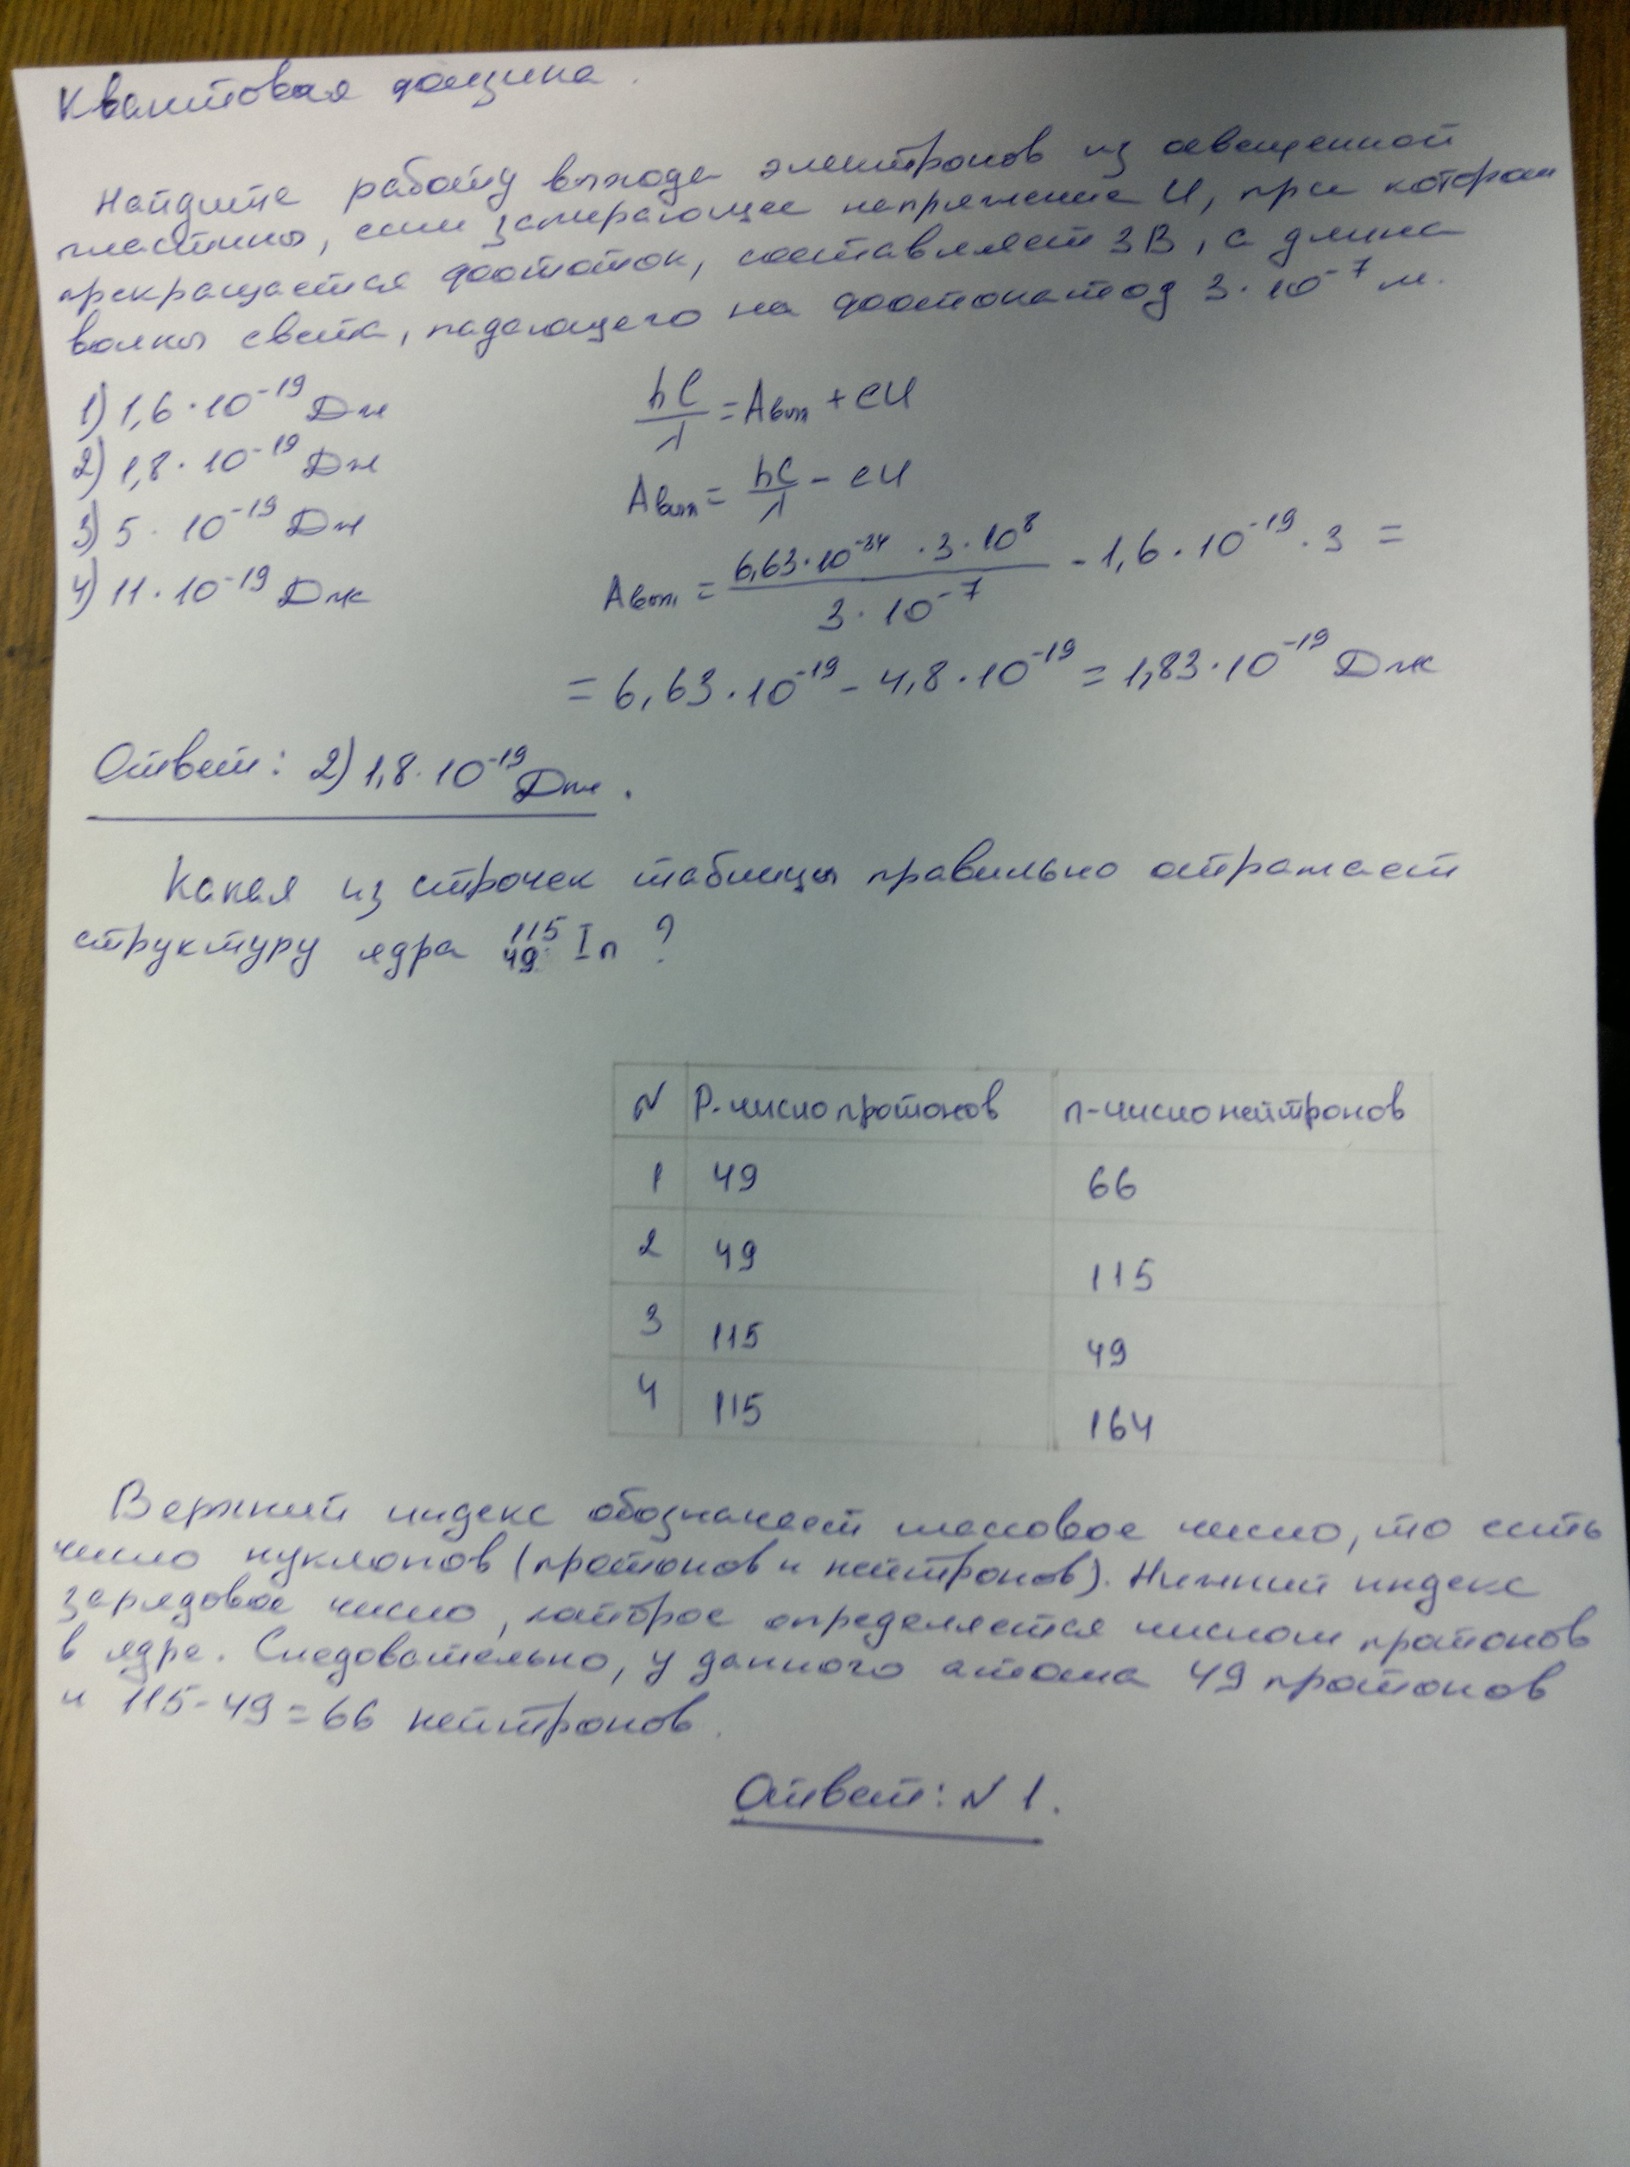 Квантовая физика.
Найдите работу выхода электронов из освещенной
пластины, если запирающее напряжение U, при котором
прекращается фототок, составляет 3 В, а длина
волны света, падающего на фотокатод 3·10⁻⁷ м.
1) 1,6·10⁻¹⁹ Дж
2) 1,8·10⁻¹⁹ Дж
3) 5·10⁻¹⁹ Дж
4) 11·10⁻¹⁹ Дж
hc/λ = Aвых + eU
Aвых = hc/λ - eU
Aвых = 6,63·10⁻³⁴·3·10⁸ / 3·10⁻⁷ - 1,6·10⁻¹⁹·3 =
= 6,63·10⁻¹⁹ - 4,8·10⁻¹⁹ = 1,83·10⁻¹⁹ Дж
Ответ: 2) 1,8·10⁻¹⁹ Дж.
Какая из строчек таблицы правильно отражает
структуру ядра ¹¹⁵₄₉In ?
N P-число протонов n-число нейтронов
1 49 66
2 49 115
3 115 49
4 115 164
Верхний индекс обозначает массовое число, то есть
число нуклонов (протонов и нейтронов). Нижний индекс
зарядовое число, которое определяется числом протонов
в ядре. Следовательно, у данного атома 49 протонов
и 115-49=66 нейтронов.
Ответ: N 1.